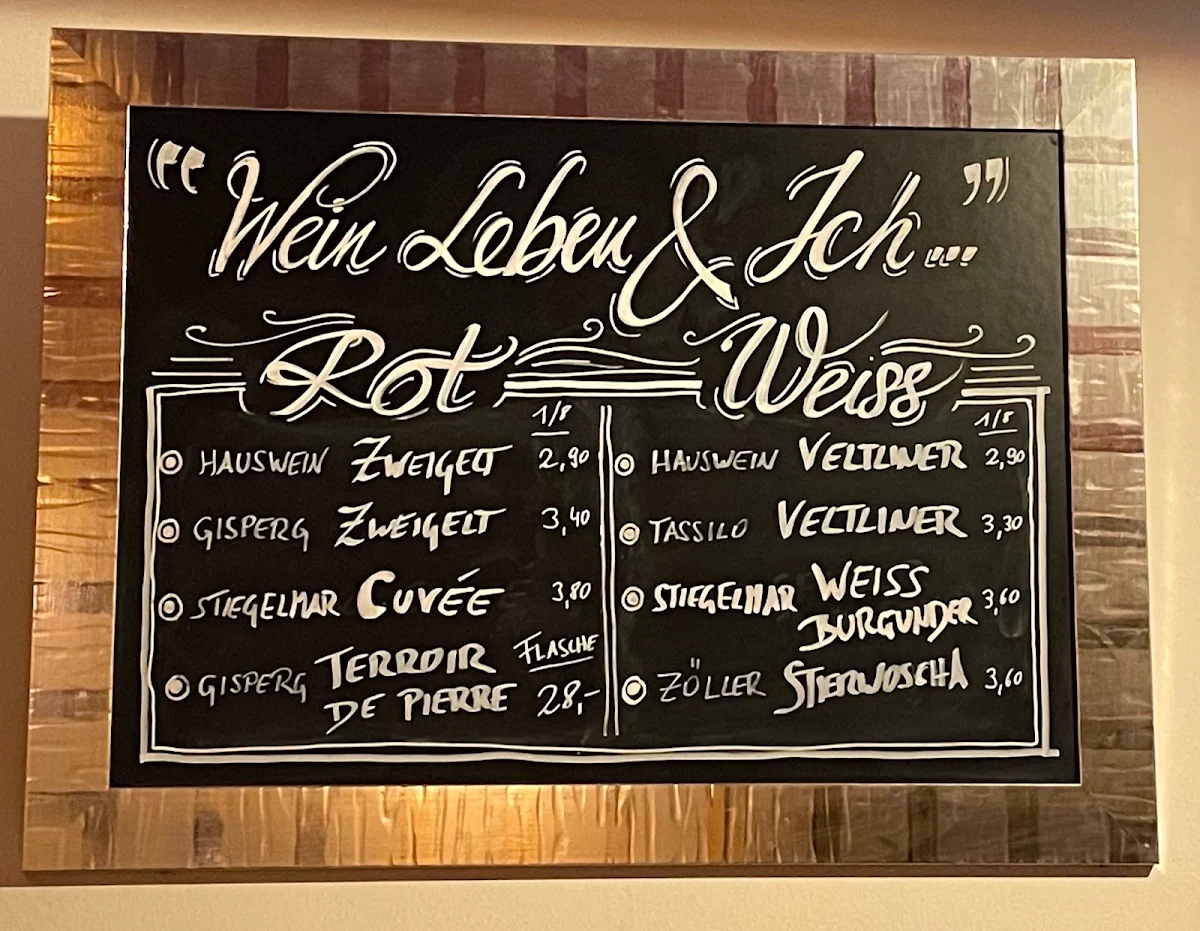 “Wein Leben & Ich...”
Rot
1/8
HAUSWEIN ZWEIGELT 2,90
GISPERG ZWEIGELT 3,40
STIEGELMAR CUVÉE 3,80
GISPERG TERROIR
DE PIERRE
FLASCHE
28,-
Weiss
1/8
HAUSWEIN VELTLINER 2,90
TASSILO VELTLINER 3,30
STIEGELMAR WEISS
BURGUNDER 3,60
ZÖLLER STIERWOSCHA 3,60